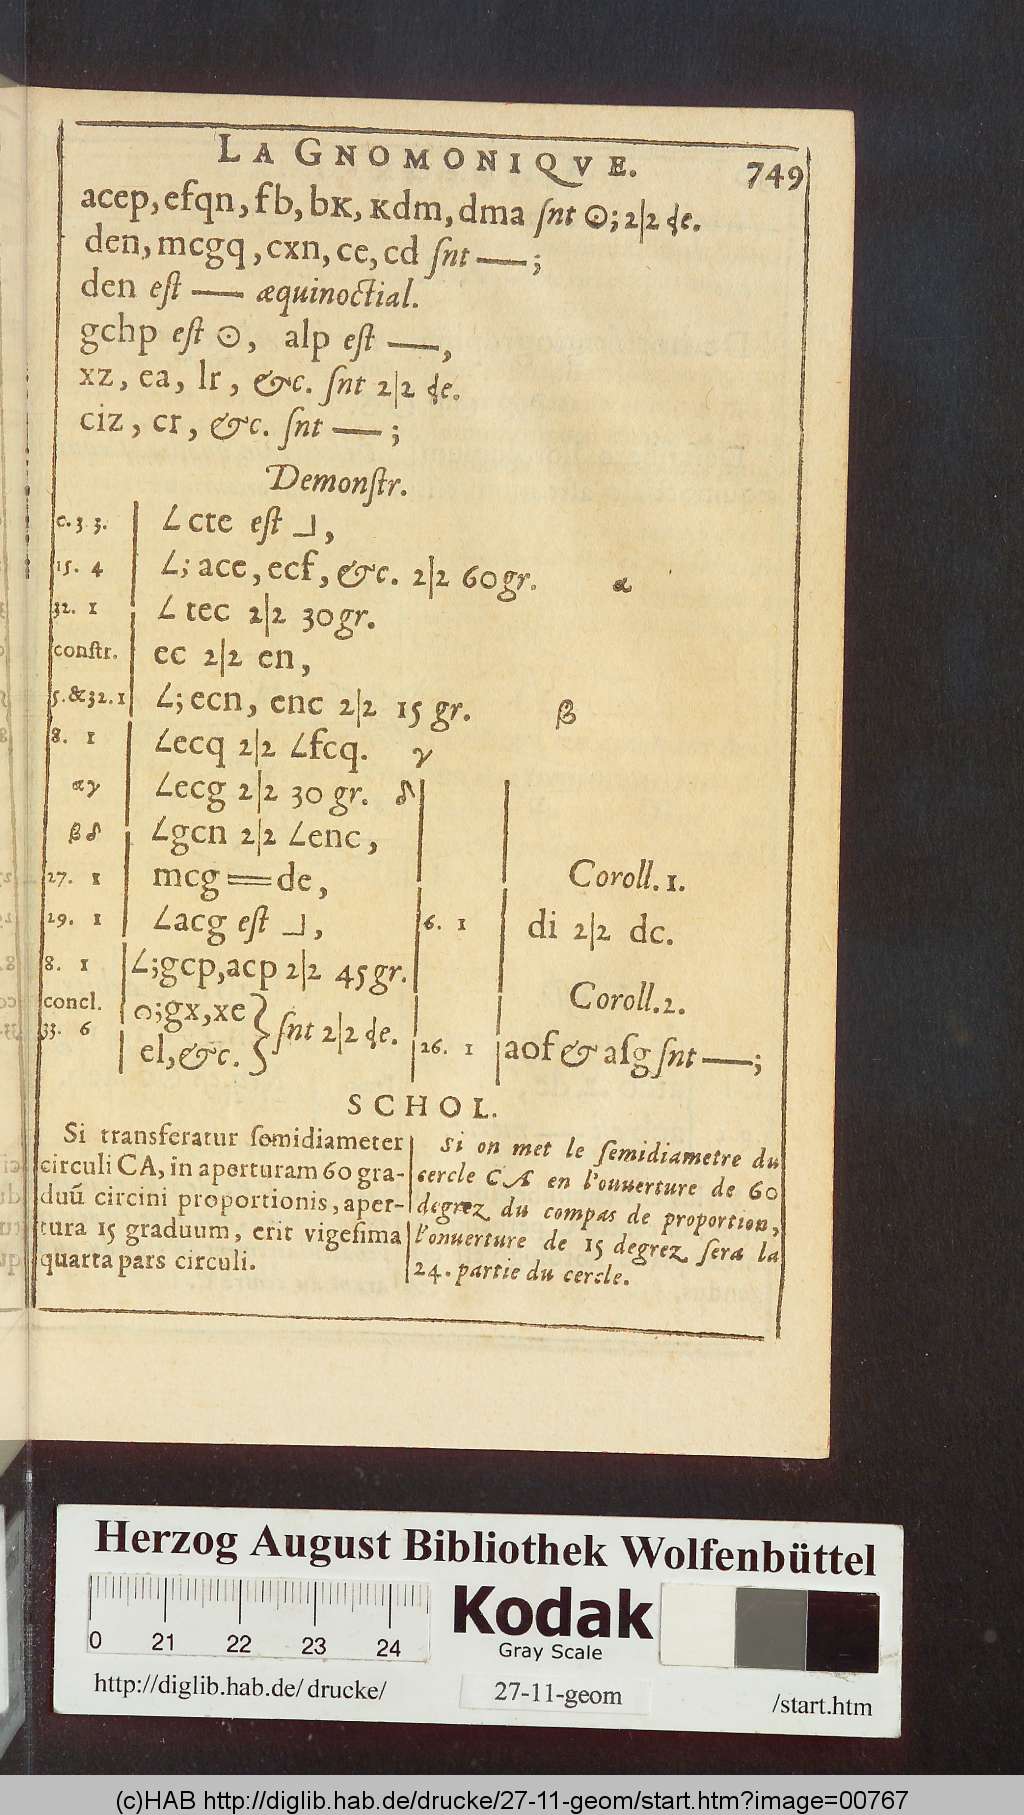 LA GNOMONIQVE. 749
acep, efqn, fb, bк, кdm, dma ſnt ⊙; 2|2 de.
den, mcgq, cxn, ce, cd ſnt —;
den eſt — æquinoctial.
gchp eſt ⊙, alp eſt —,
xz, ea, lr, &c. ſnt 2|2 de.
ciz, cr, &c. ſnt —;
Demonſtr.
c. 3 3. | ∠ cte eſt ⅃,
15. 4 | ∠; ace, ecf, &c. 2|2 60 gr. α
32. 1 | ∠ tec 2|2 30 gr.
conſtr. | ec 2|2 en,
5. & 32. 1 | ∠; ecn, enc 2|2 15 gr. β
8. 1 | ∠ecq 2|2 ∠fcq. γ
αγ | ∠ecg 2|2 30 gr. δ
βδ | ∠gcn 2|2 ∠enc,
27. 1 | mcg = de,
29. 1 | ∠acg eſt ⅃,
8. 1 | ∠; gcp, acp 2|2 45 gr.
concl. | ⌒; gx, xe
33. 6 | el, &c. } ſnt 2|2 de.
Coroll. 1.
6. 1 | di 2|2 dc.
Coroll. 2.
26. 1 | aof & aſg ſnt —;
SCHOL.
Si transferatur ſemidiameter
circuli CA, in aperturam 60 gra-
duũ circini proportionis, aper-
tura 15 graduum, erit vigeſima
quarta pars circuli.
Si on met le ſemidiametre du
cercle CA en l'ouuerture de 60
degrez du compas de proportion,
l'ouuerture de 15 degrez ſera la
24. partie du cercle.
Herzog August Bibliothek Wolfenbüttel
0 21 22 23 24
Kodak
Gray Scale
http://diglib.hab.de/drucke/
27-11-geom
/start.htm
(c)HAB http://diglib.hab.de/drucke/27-11-geom/start.htm?image=00767